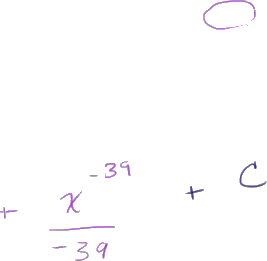 + x^{-39}/-39 + C